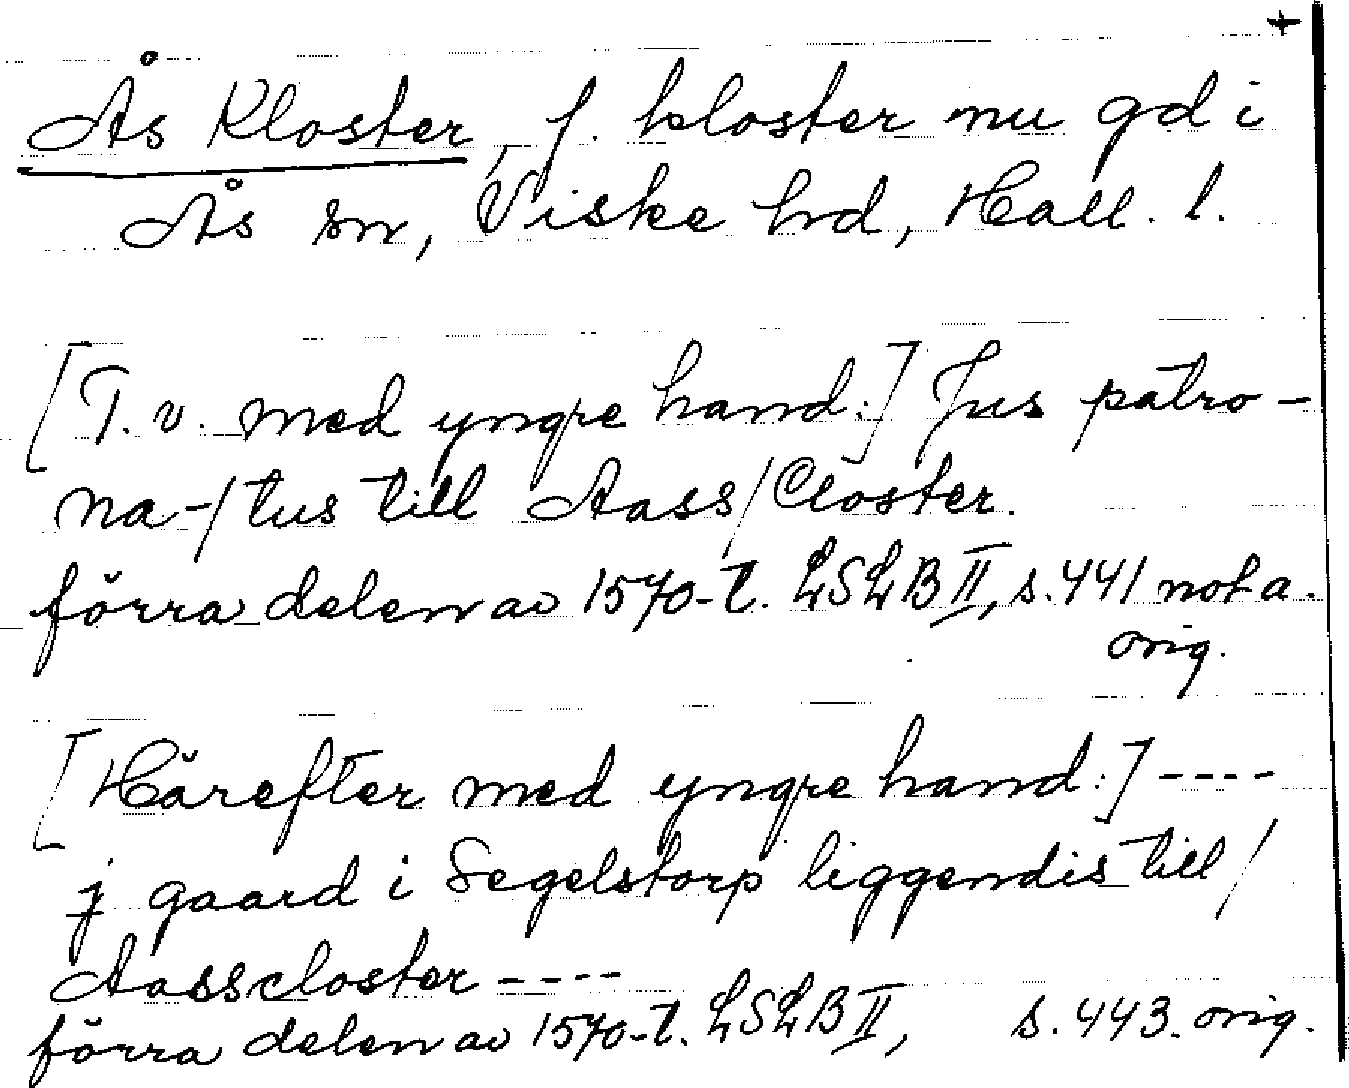 +
Ås Kloster, f. kloster nu gd i
Ås sn, Viske hd, Hall. l.
[T. v. med yngre hand:] Jus patro-
na-/tus till Aass/Closter.
förra delen av 1570-t. LSLB II, s. 441 not a.
orig.
[Härefter med yngre hand:] ----
j gaard i Segelstorp liggendis till/
Aasscloster ----
förra delen av 1570-t. LSLB II, s. 443. orig.